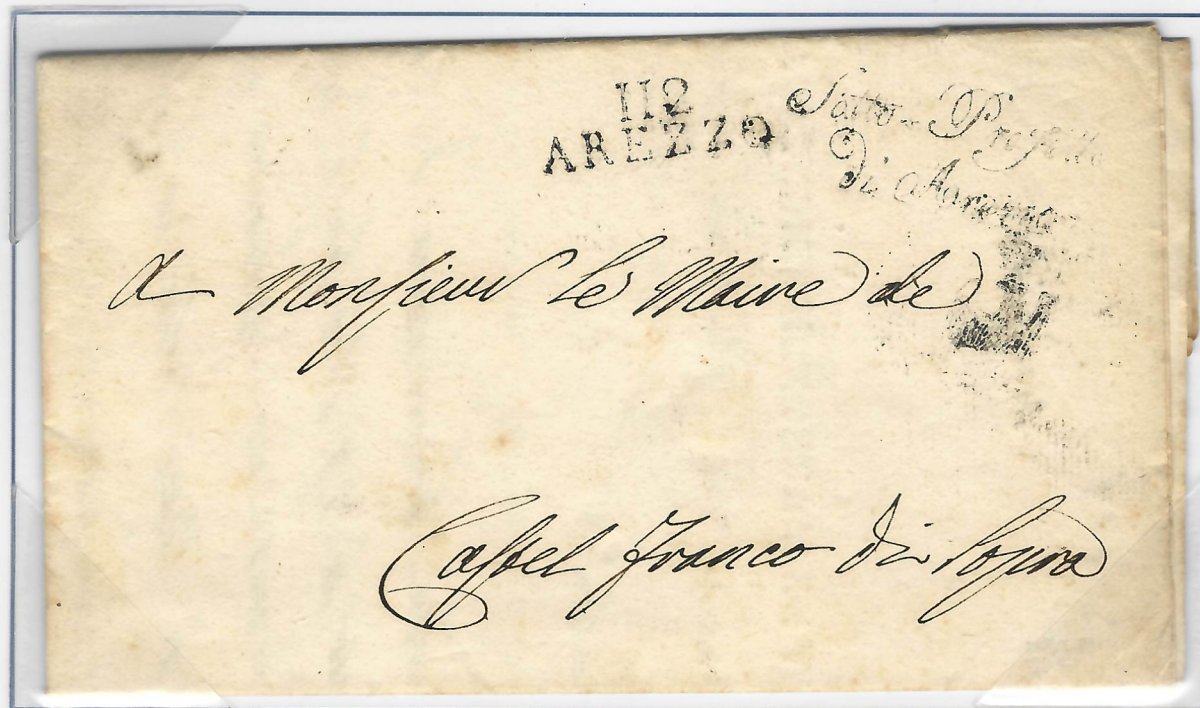 112
AREZZO
Sotto-Prefetto
di Arezzo
A Monsieur le Maire de
Castel Franco di Sopra